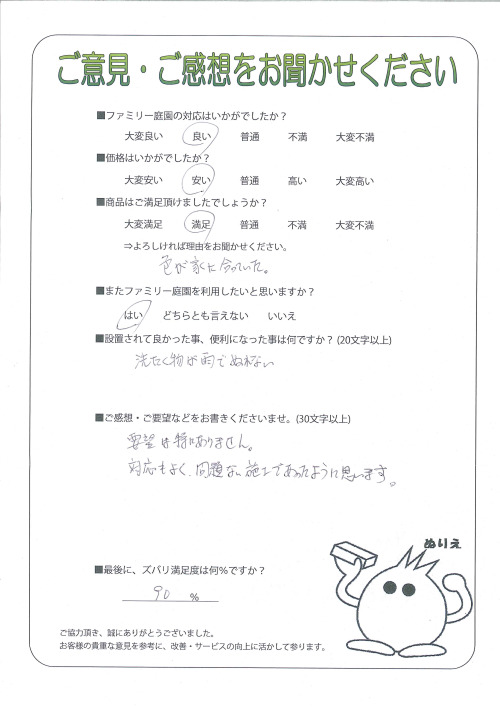 ご意見・ご感想をお聞かせください
■ファミリー庭園の対応はいかがでしたか？
大変良い　良い　普通　不満　大変不満
■価格はいかがでしたか？
大変安い　安い　普通　高い　大変高い
■商品はご満足頂けましたでしょうか？
大変満足　満足　普通　不満　大変不満
⇒よろしければ理由をお聞かせください。
色が家に合っていた。
■またファミリー庭園を利用したいと思いますか？
はい　どちらとも言えない　いいえ
■設置されて良かった事、便利になった事は何ですか？(20文字以上)
洗たく物が雨でぬれない
■ご感想・ご要望などをお書きくださいませ。(30文字以上)
要望は特にありません。
対応もよく、問題ない施工であったように思います。
ぬりえ
■最後に、ズバリ満足度は何％ですか？
90 %
ご協力頂き、誠にありがとうございました。
お客様の貴重な意見を参考に、改善・サービスの向上に活かして参ります。